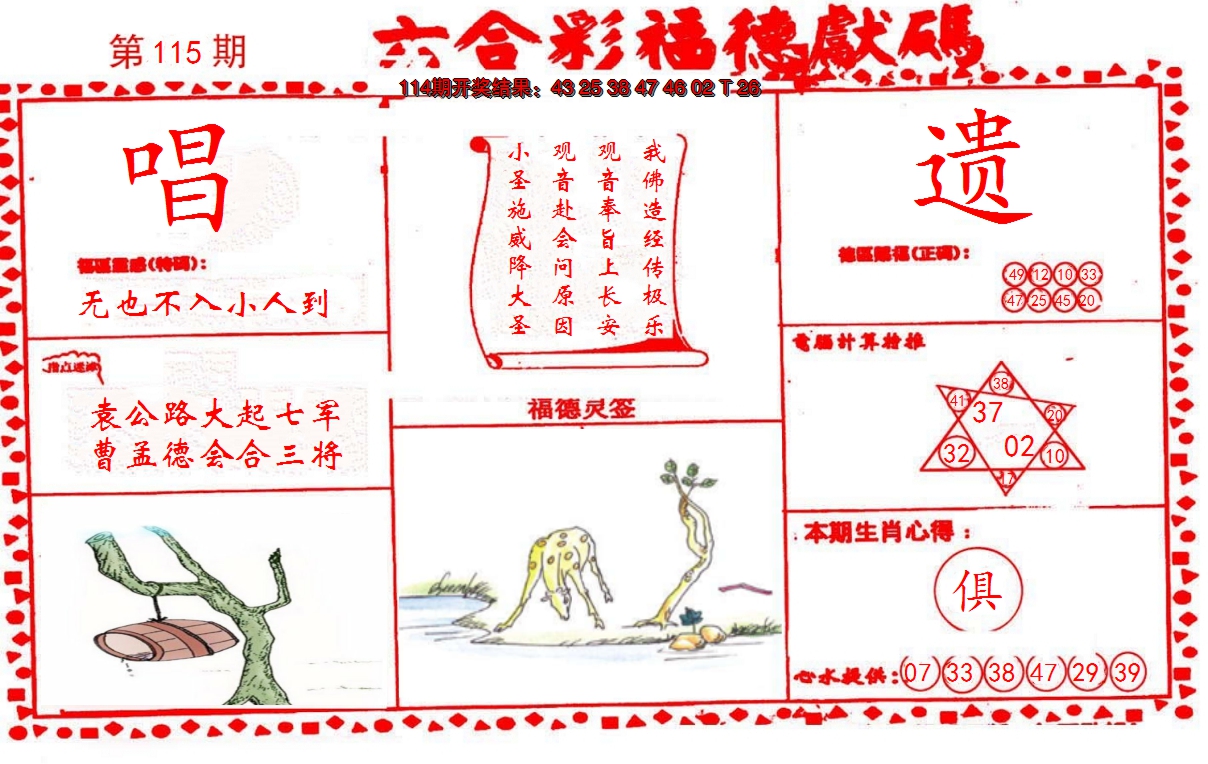 第115期
六合彩福德獻碼
114期开奖结果：43 25 38 47 46 02 T 26
唱
福區靈感(特碼)：
无也不入小人到
指点迷津
袁公路大起七军
曹孟德会合三将
我佛造经传极乐
观音奉旨上长安
观音赴会问原因
小圣施威降大圣
福德灵签
遗
德區賜福(正碼)：
49 12 10 33
47 25 45 20
電腦计算恰推
38
41 37 20
32 02 10
17
本期生肖心得：
俱
心水提供：07 33 38 47 29 39